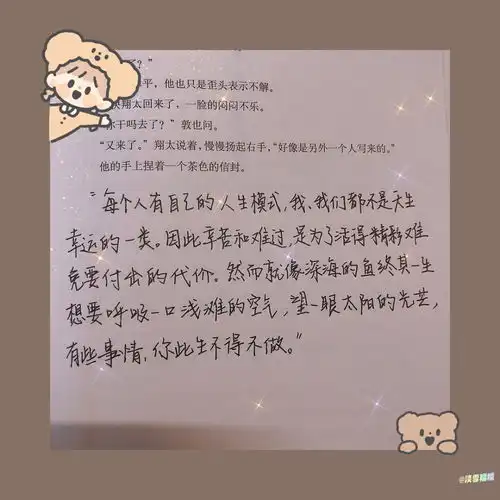 了？”
平，他也只是歪头表示不解。
快翔太回来了，一脸的闷闷不乐。
“你干吗去了？”敦也问。
“又来了。”翔太说着，慢慢扬起右手，“好像是另外一个人写来的。”
他的手上捏着一个茶色的信封。
“每个人有自己的人生模式，我、我们都不是天生
幸运的一类。因此辛苦和难过，是为了活得精彩难
免要付出的代价。然而就像深海的鱼终其一生
想要呼吸一口浅滩的空气，望一眼太阳的光芒，
有些事情，你此生不得不做。”